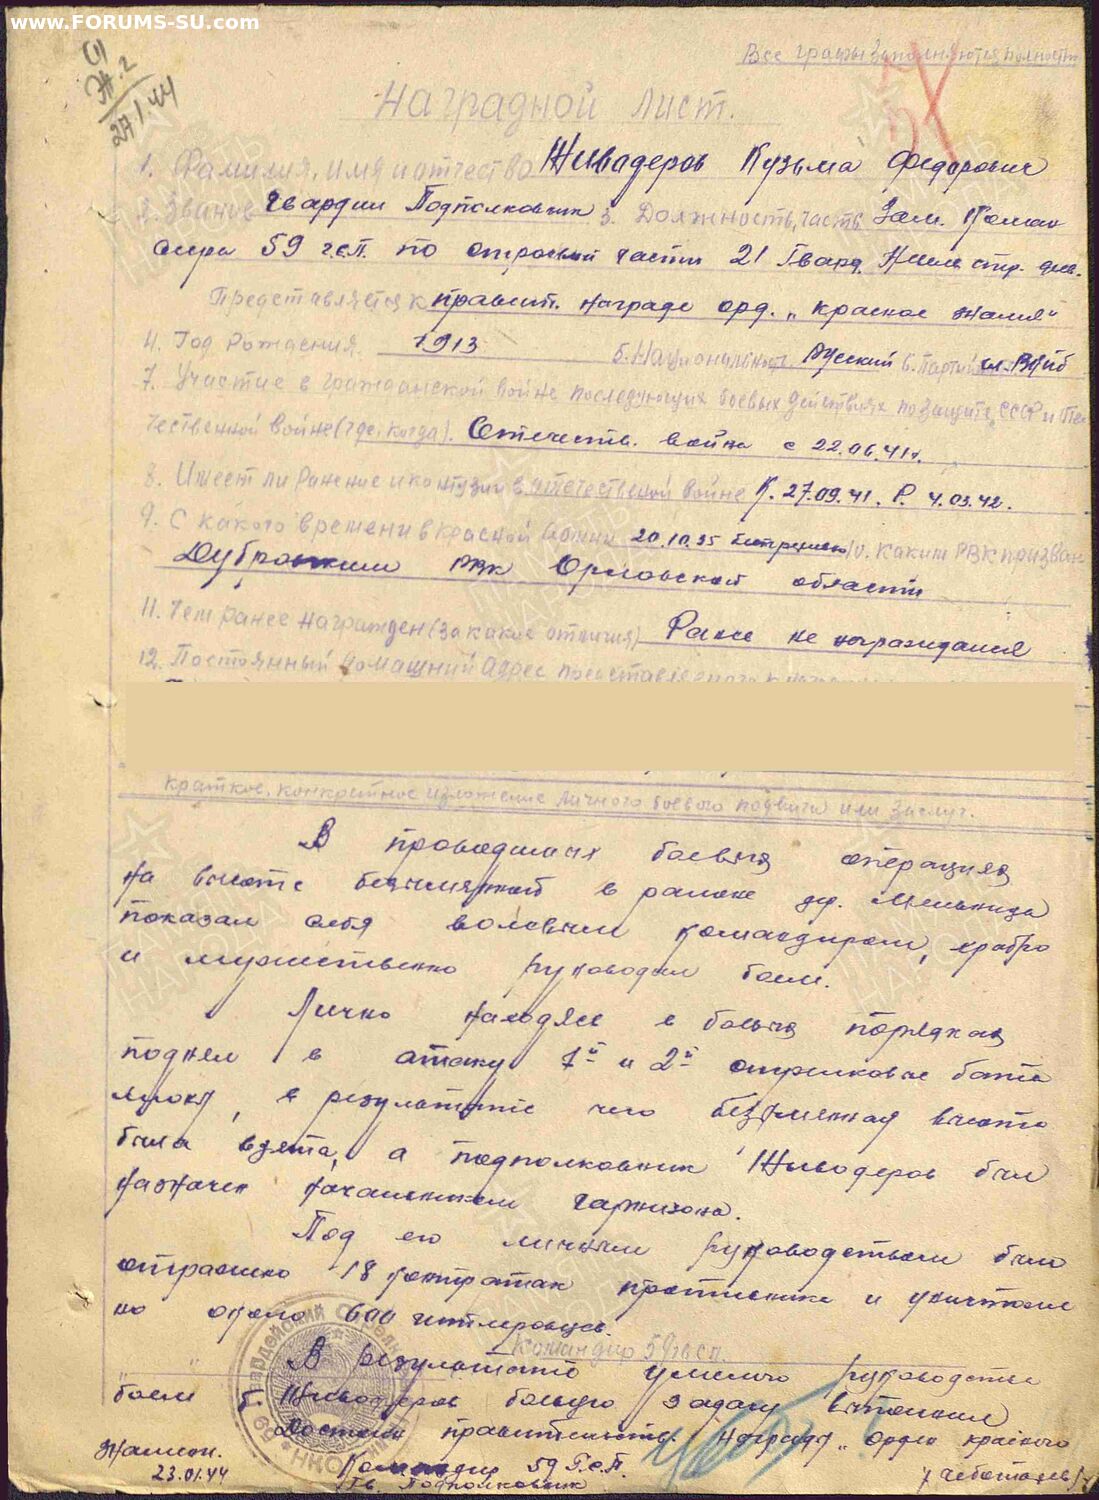 www.FORUMS-SU.com
27/1.44
Все графы заполняются полност
Наградной лист.
1. Фамилия, имя и отчество Живадеров Кузьма Федорович
2. Звание Гвардии Подполковник 3. Должность, часть Зам. Коман
дира 59 г.с.п. по строевой части 21 Гвард. Нев. стр. див.
Представляется к правит. награде орд. „Красное Знамя"
4. Год рождения 1913 5. Национальность Русский 6. Партийн чл. ВКПб
7. Участие в гражданской войне последующих боевых действиях по защите СССР и Оте
чественной войне (где, когда). Отечеств. война с 22.06.41г.
8. Имеет ли ранение и контузии в отечественной войне К. 27.09.41. Р. 4.03.42.
9. С какого времени в Красной Армии 20.10.35 10. Каким РВК призван
Дубровским РВК Орловской области
11. Чем ранее награжден (за какое отличия) Ранее не награждался
12. Постоянный домашний адрес представляемого к награ
краткое, конкретное изложение личного боевого подвига или заслуг.
В проводимых боевых операциях
на высоте безымянной в районе др. Мельница
показал себя волевым командиром, храбро
и мужественно руководил боем.
Лично находясь в боевых порядках
поднял в атаку 1й и 2й стрелковые бата
льоны, в результате чего безымянная высота
была взята, а подполковник Живодеров был
назначен начальником гарнизона.
Под его личным руководством было
отражено 18 контратак противника и уничтоже
но около 600 гитлеровцев.
Командир 59 гвсп.
В результате умелого руководства
боем т. Живодеров боевую задачу выполнил
Достоин правительств. награды „Орден красного
Знамен.
23.01.44
Командир 59 Г.С.П.
Гв. Подполковник
/Чеботаев/